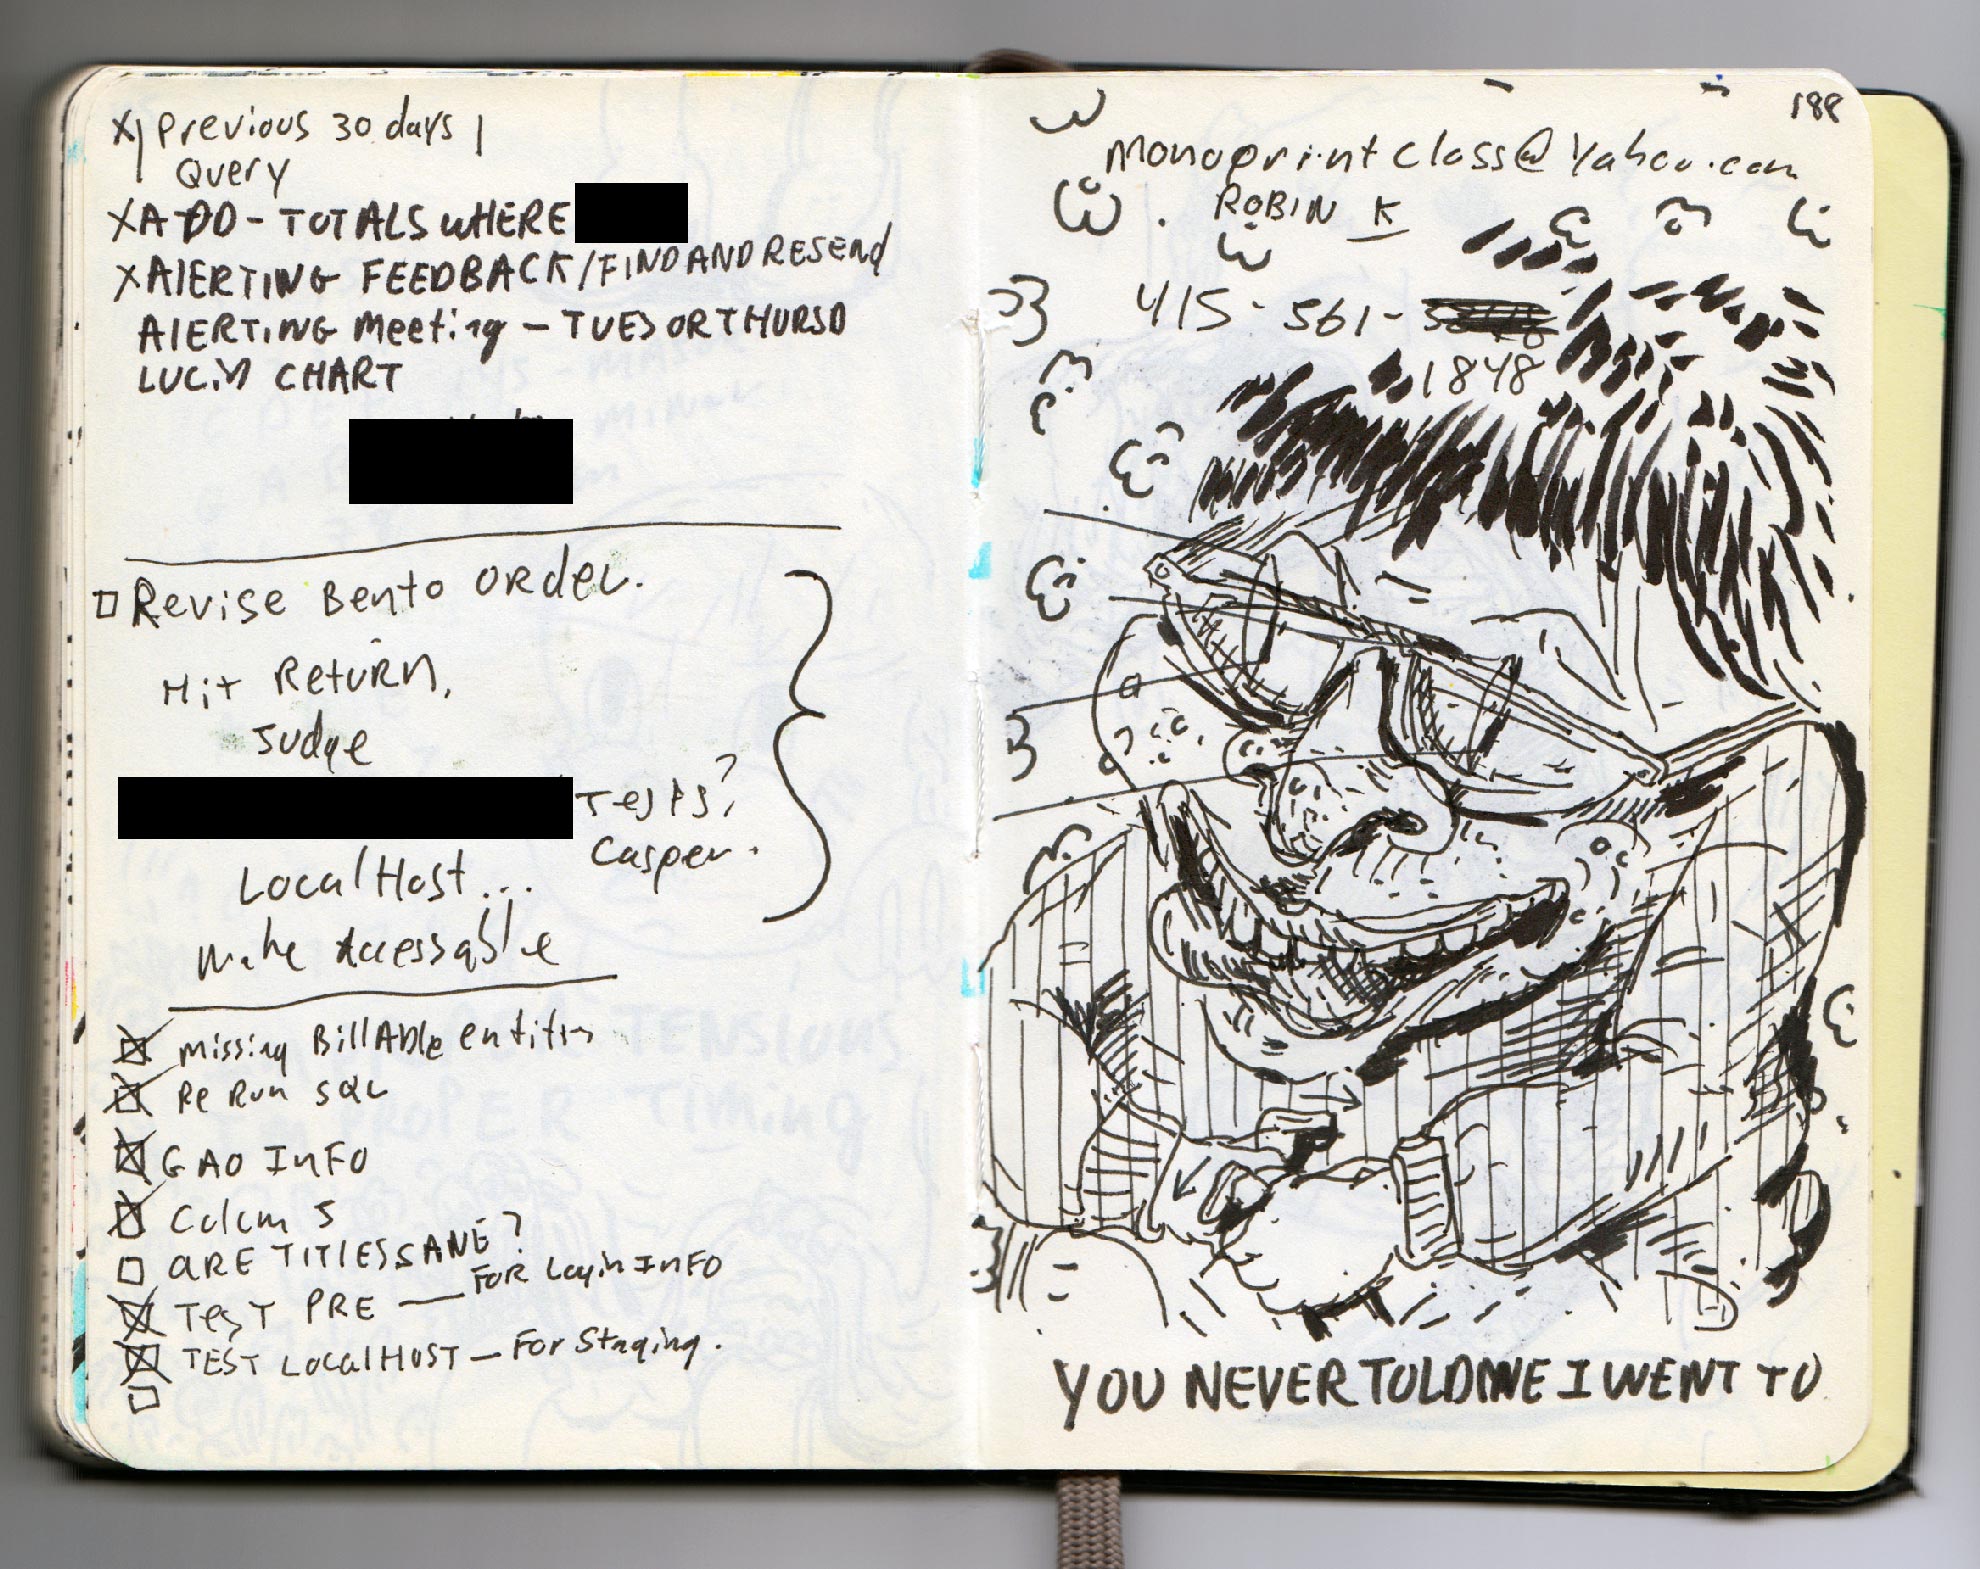 x Previous 30 days
Query
x ADD - TOTALS WHERE
x AlERTING FEEDBACK/FIND AND RESEnd
AlERTING Meeting - TUES OR THURSD
LUCiD CHART
Revise Bento order.
Hit Return,
Judge
Tests?
Casper.
LocalHost...
Make Accessable
Missing BillAble entities
Re Run SQL
GAO InFO
Colum 5
aRE TITLES SANE?
TesT PRE — FOR Login InFO
TEST LocalHOST — For Staging.
188
monoprintclass@yahoo.com
ROBIN K
415-561-
1848
YOU NEVER TOLD ME I WENT TO